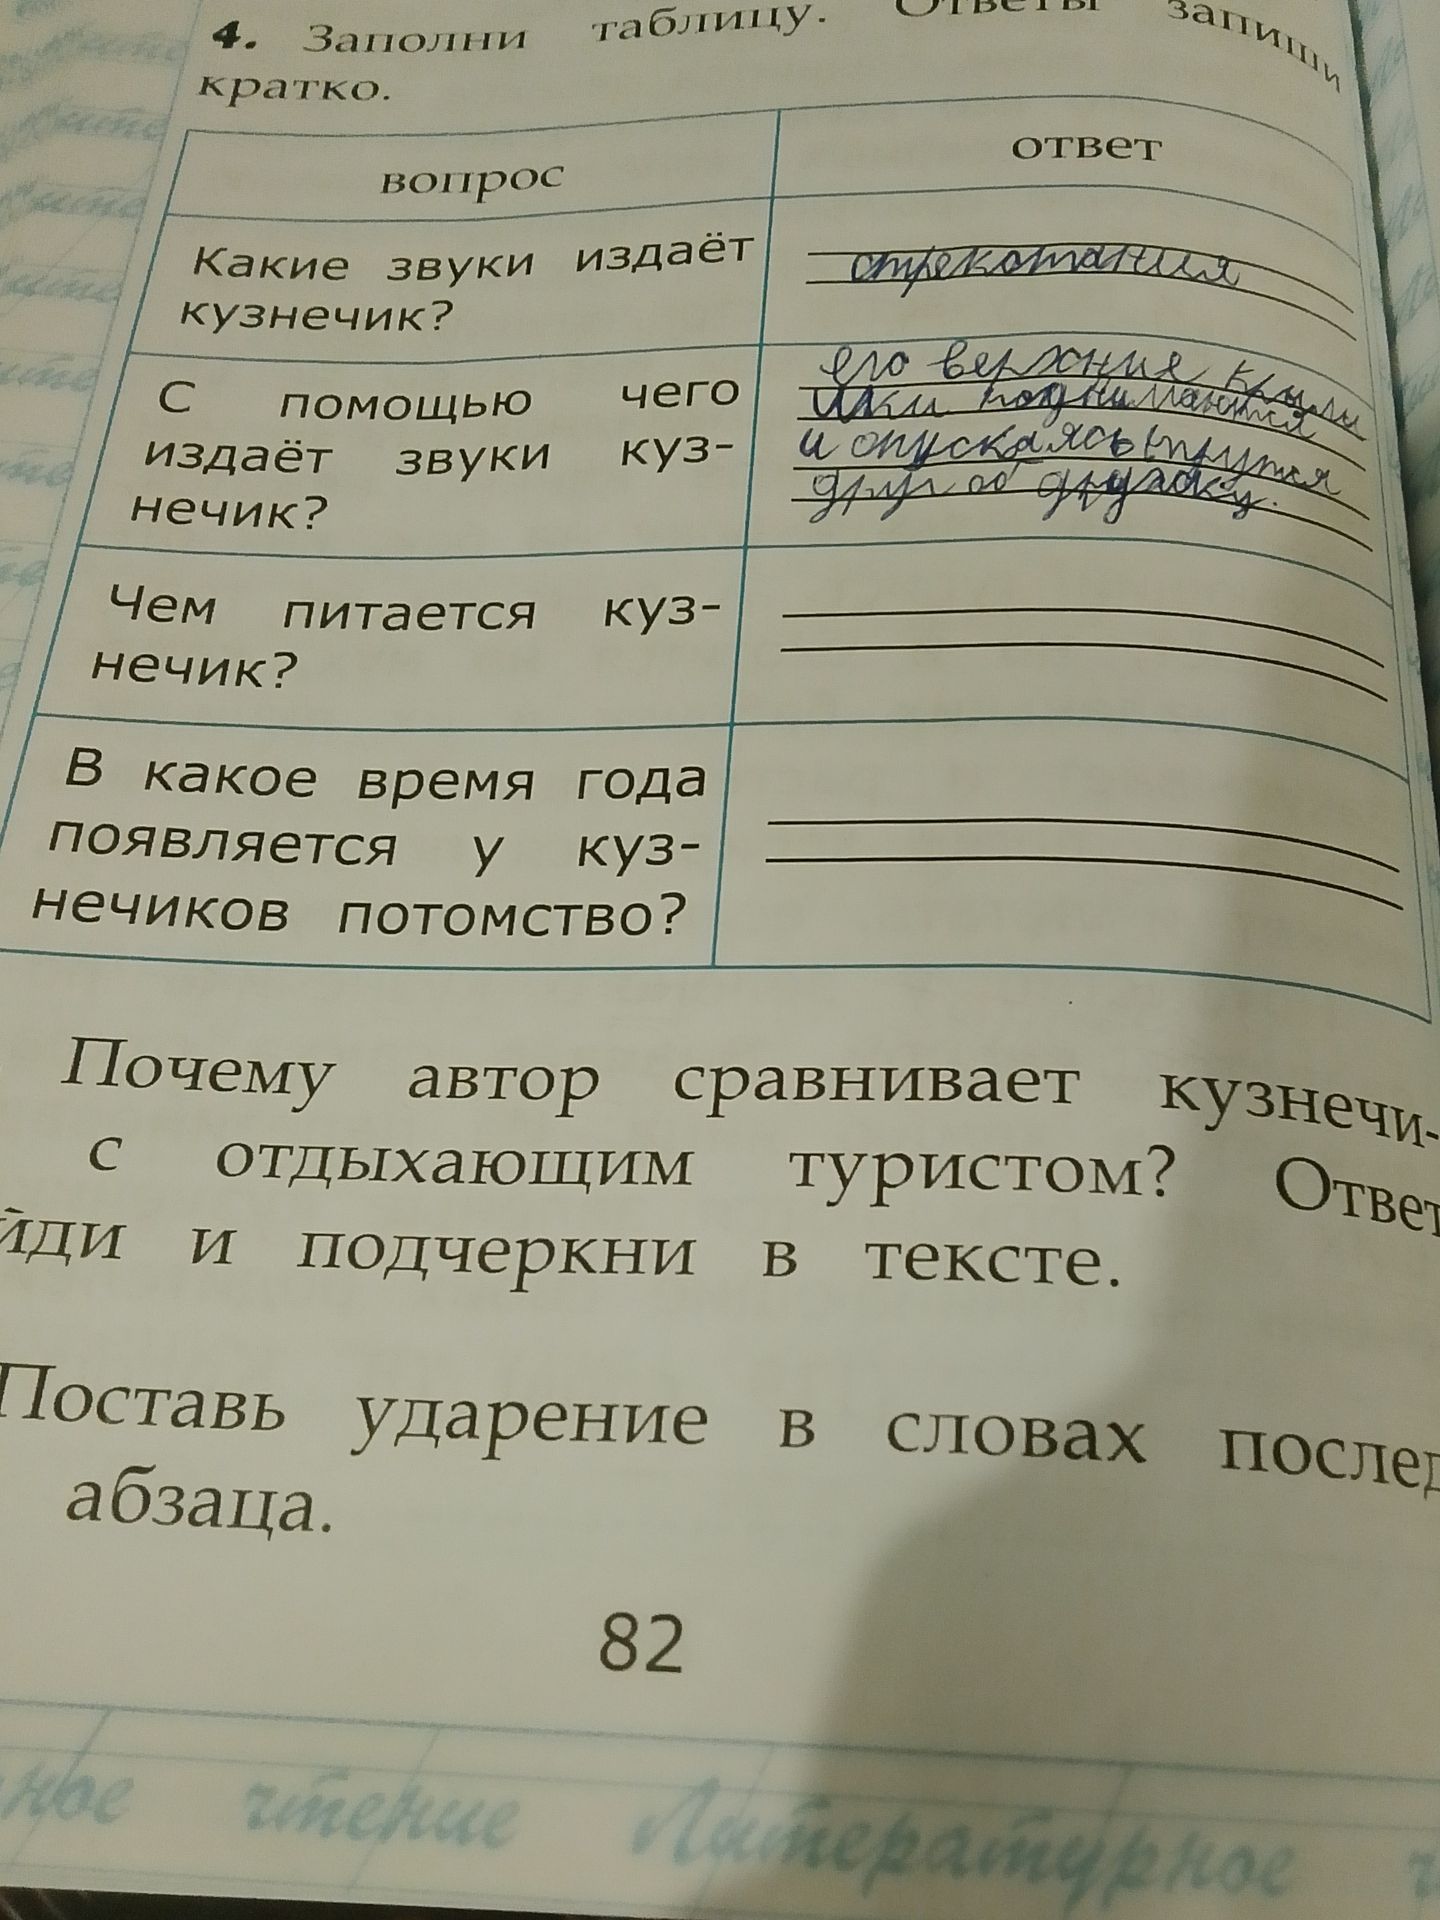 4. Заполни таблицу. Ответы запиши
кратко.
вопрос
ответ
Какие звуки издаёт
кузнечик?
стрекотания
С помощью чего
издаёт звуки куз-
нечик?
его верхние крылы
шки поднимаются
и опускаясь трутся
друг об дружку.
Чем питается куз-
нечик?
В какое время года
появляется у куз-
нечиков потомство?
Почему автор сравнивает кузнечи-
с отдыхающим туристом? Ответ
йди и подчеркни в тексте.
Поставь ударение в словах послед
абзаца.
82
ное чтение Литературное ч